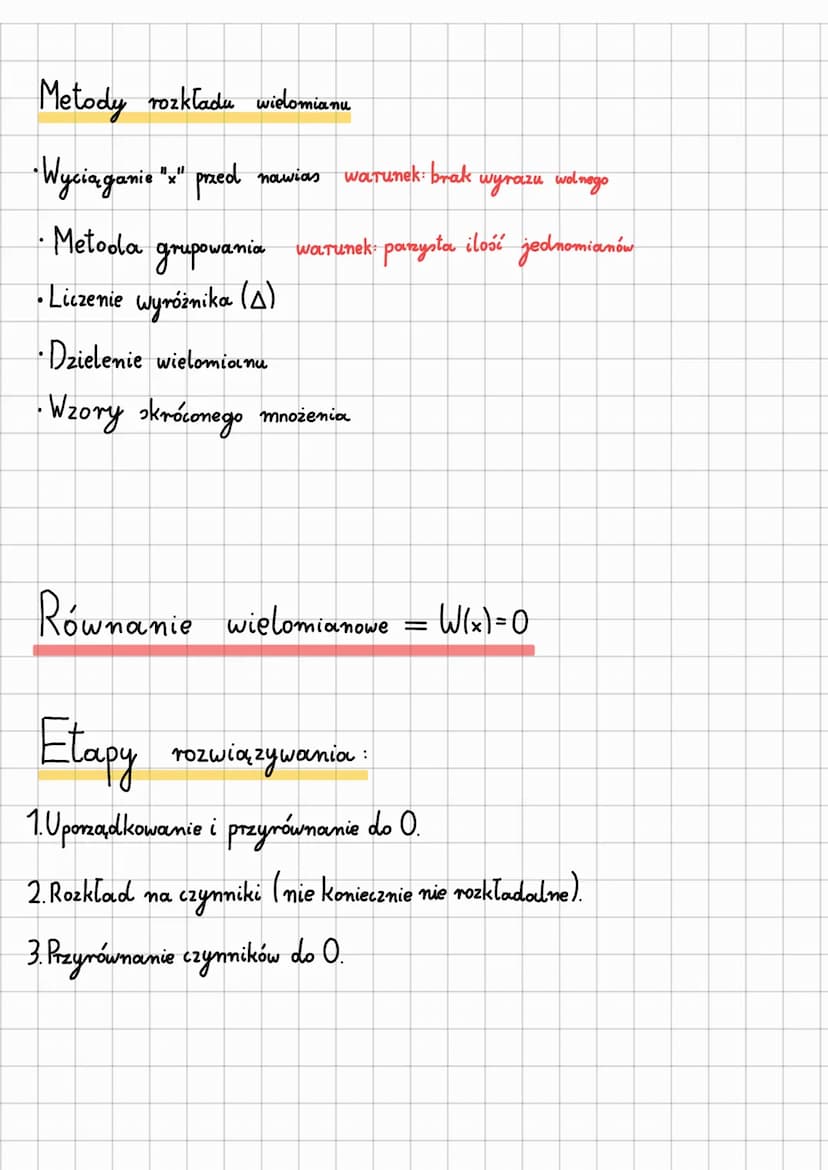 Metody rozkładu wielomianu
·Wyciąganie "x" przed nawias warunek: brak wyrazu wolnego
· Metoda grupowania warunek: parzysta ilość jednomianów
·Liczenie wyróżnika (Δ)
·Dzielenie wielomianu
·Wzory skróconego mnożenia
Równanie wielomianowe = W(x)=0
Etapy rozwiązywania:
1.Uporządkowanie i przyrównanie do 0.
2.Rozkład na czynniki (nie koniecznie nie rozkładalne).
3.Przyrównanie czynników do 0.